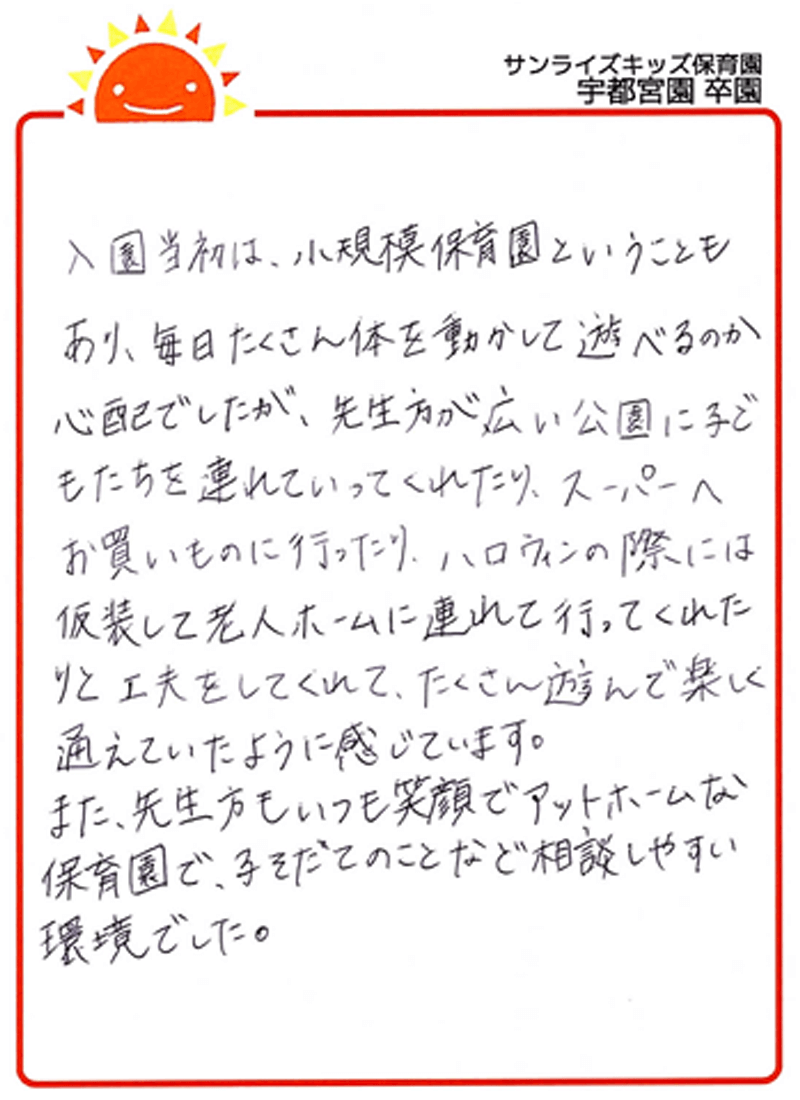 サンライズキッズ保育園
宇都宮園 卒園
入園当初は、小規模保育園ということも
あり、毎日たくさん体を動かして遊べるのか
心配でしたが、先生方が広い公園に子ど
もたちを連れていってくれたり、スーパーへ
お買いものに行ったり、ハロウィンの際には
仮装して老人ホームに連れて行ってくれた
りと工夫をしてくれて、たくさん遊んで楽しく
通えていたように感じています。
また、先生方もいつも笑顔でアットホームな
保育園で、子そだてのことなど相談しやすい
環境でした。